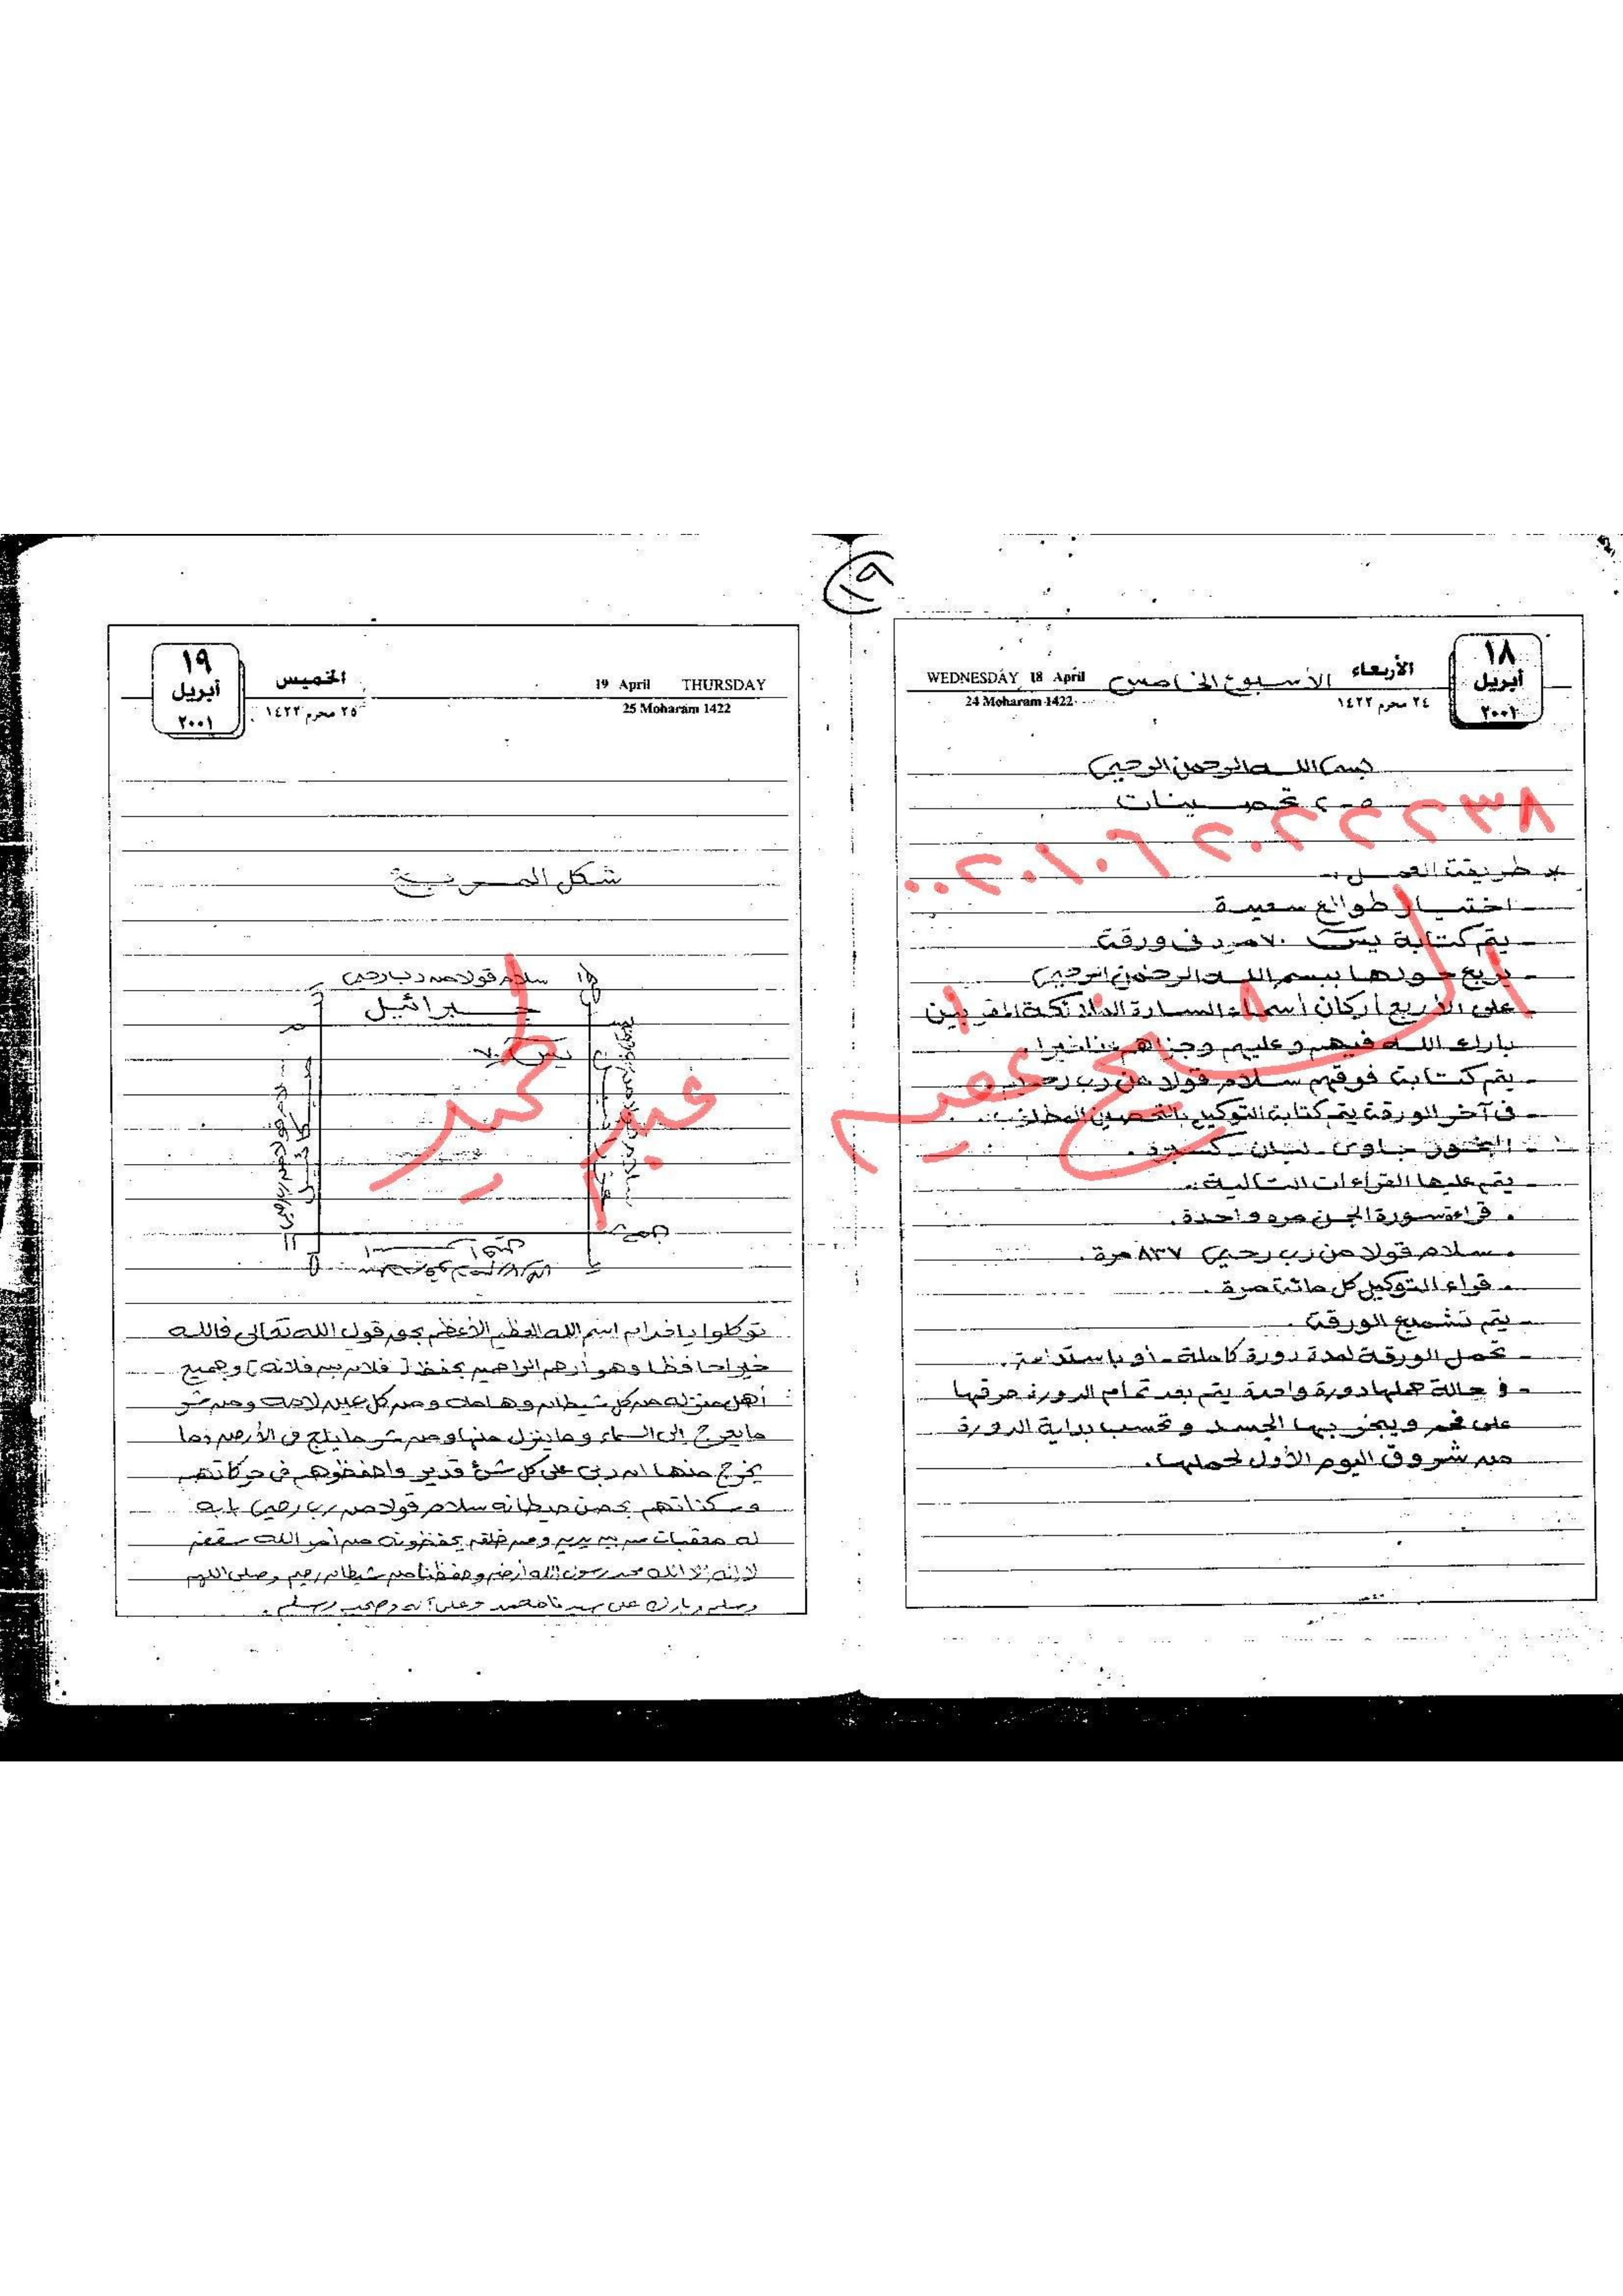 ١٩
١٨
أبريل
٢٠٠١
الأربعاء
٢٤ محرم ١٤٢٢
الأسبوع الخامس
WEDNESDAY 18 April
24 Moharam 1422
بسم الله الرحمن الرحيم
تحصينات
* طريقة العمل :-
- اختيار طوالع سعيدة
- يتم كتابة يس ٧٠ مرة في ورقة
- يربع حولها ببسم الله الرحمن الرحيم
- على الأربع أركان أسماء السادة الملائكة المقربين
بارك الله فيهم وعليهم وجزاهم عنا خيرا .
- يتم كتابة فوقهم سلام قولا من رب رحيم
- في آخر الورقة يتم كتابة التوكيل بالتحصين المطلوب .
- البخور جاوى - لبان - كسبرة .
- يتم عليها القراءات التالية :-
. قراءة سورة الجن مره واحدة .
. سلام قولا من رب رحيم ٨٣٧ مرة .
. قراء التوكيل كل مائة مرة .
- يتم تشميع الورقة .
- تحمل الورقة لمدة دورة كاملة - أو باستدامة .
- فى حالة حملها دورة واحدة يتم بعد تمام الدورة حرقها
على فحم ويبخر بها الجسد وتحسب بداية الدورة
من شروق اليوم الأول لحملها .
١٩
أبريل
٢٠٠١
الخميس
٢٥ محرم ١٤٢٢
19 April THURSDAY
25 Moharam 1422
شكل المربع
سلام قولا من رب رحيم
جبرائيل
يس ٧٠
ميكائيل
توكلوا يا خدام اسم الله العظيم الأعظم بحق قول الله تعالى فالله
خير حافظا وهو أرحم الراحمين بحفظ ( فلان بن فلانه ) وجميع
أهل منزله من كل شيطان وهامه ومن كل عين لامه ومن شر
ما يعرج إلى السماء وما ينزل منها ومن شر ما يلج في الأرض وما
يخرج منها ان ربى على كل شئ قدير واحفظوهم في حركاتهم
وسكناتهم بحصن حيطانه سلام قولا من رب رحيم بابه
له معقبات من بين يديه ومن خلفه يحفظونه من أمر الله سقفه
لا إله إلا الله محمد رسول الله أرضه وحفظناها من شيطان رجيم وصلى اللهم
وسلم وبارك على سيدنا محمد وعلى آله وصحبه وسلم .
الشيخ
عبد